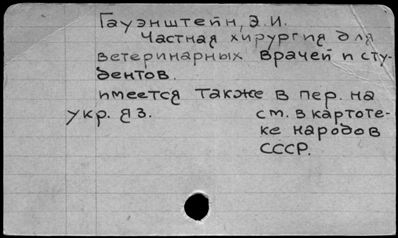 Гауэнштейн, Э. И.
Частная хирургия для
ветеринарных врачей и сту-
дентов.
имеется также в пер. на
укр. яз. см. в картоте-
ке народов
СССР.